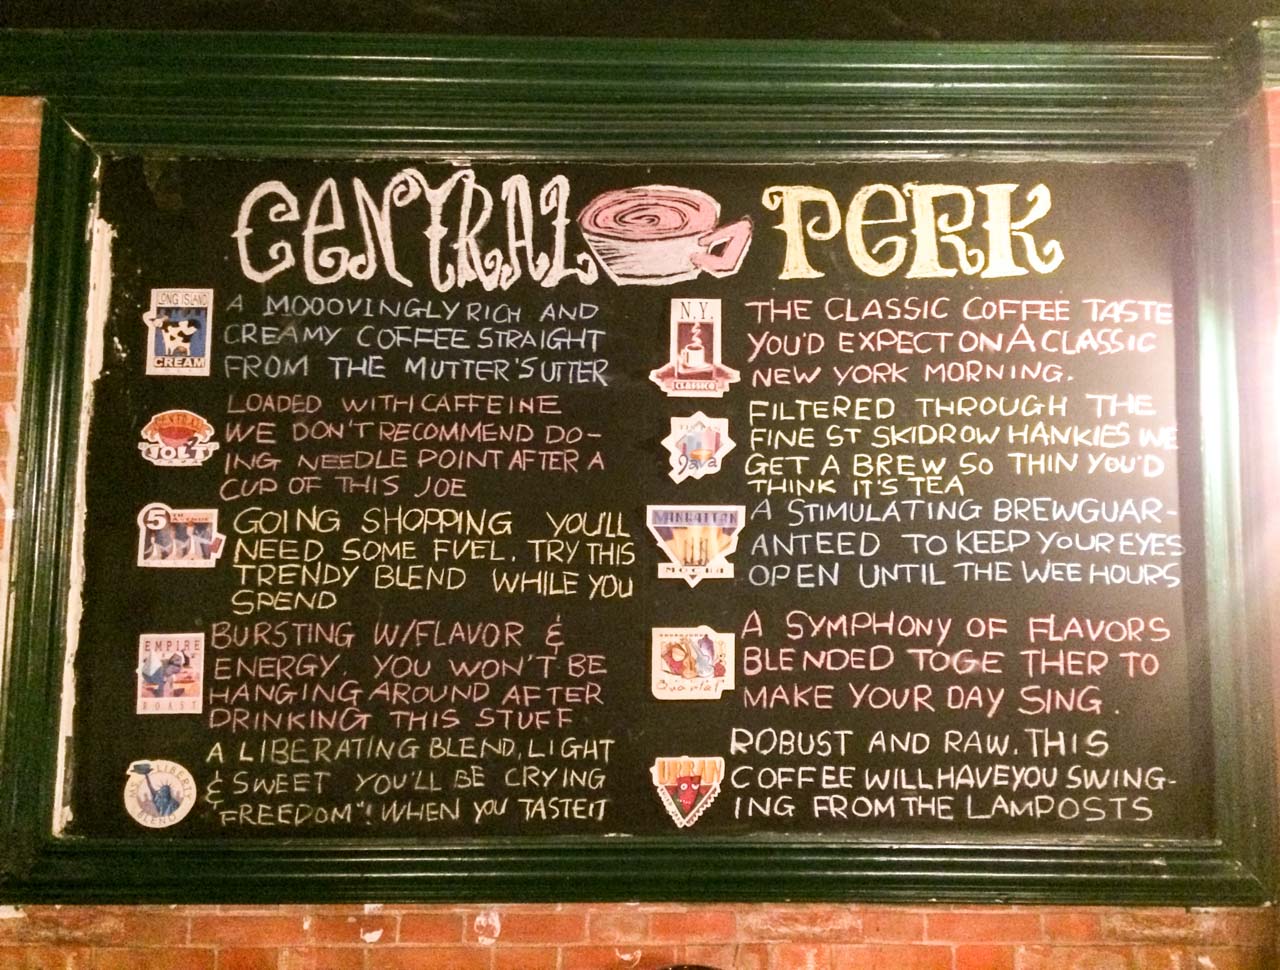 CENTRAL PERK
LONG ISLAND
CREAM
A MOOOVINGLY RICH AND
CREAMY COFFEE STRAIGHT
FROM THE MUTTER'S UTTER
CENTRAL
JOLT
LOADED WITH CAFFEINE
WE DON'T RECOMMEND DO-
ING NEEDLE POINT AFTER A
CUP OF THIS JOE
5
GOING SHOPPING YOU'LL
NEED SOME FUEL. TRY THIS
TRENDY BLEND WHILE YOU
SPEND
EMPIRE
ROAST
BURSTING W/FLAVOR &
ENERGY. YOU WON'T BE
HANGING AROUND AFTER
DRINKING THIS STUFF
LIBERTY
BLEND
A LIBERATING BLEND, LIGHT
& SWEET YOU'LL BE CRYING
"FREEDOM"! WHEN YOU TASTE IT
N.Y.
CLASSICO
THE CLASSIC COFFEE TASTE
YOU'D EXPECT ON A CLASSIC
NEW YORK MORNING.
Java
FILTERED THROUGH THE
FINE ST SKIDROW HANKIES WE
GET A BREW SO THIN YOU'D
THINK IT'S TEA
MANHATTAN
A STIMULATING BREW GUAR-
ANTEED TO KEEP YOUR EYES
OPEN UNTIL THE WEE HOURS
Quartet
A SYMPHONY OF FLAVORS
BLENDED TOGE THER TO
MAKE YOUR DAY SING.
URBAN
ROBUST AND RAW. THIS
COFFEE WILL HAVE YOU SWING-
ING FROM THE LAMPOSTS